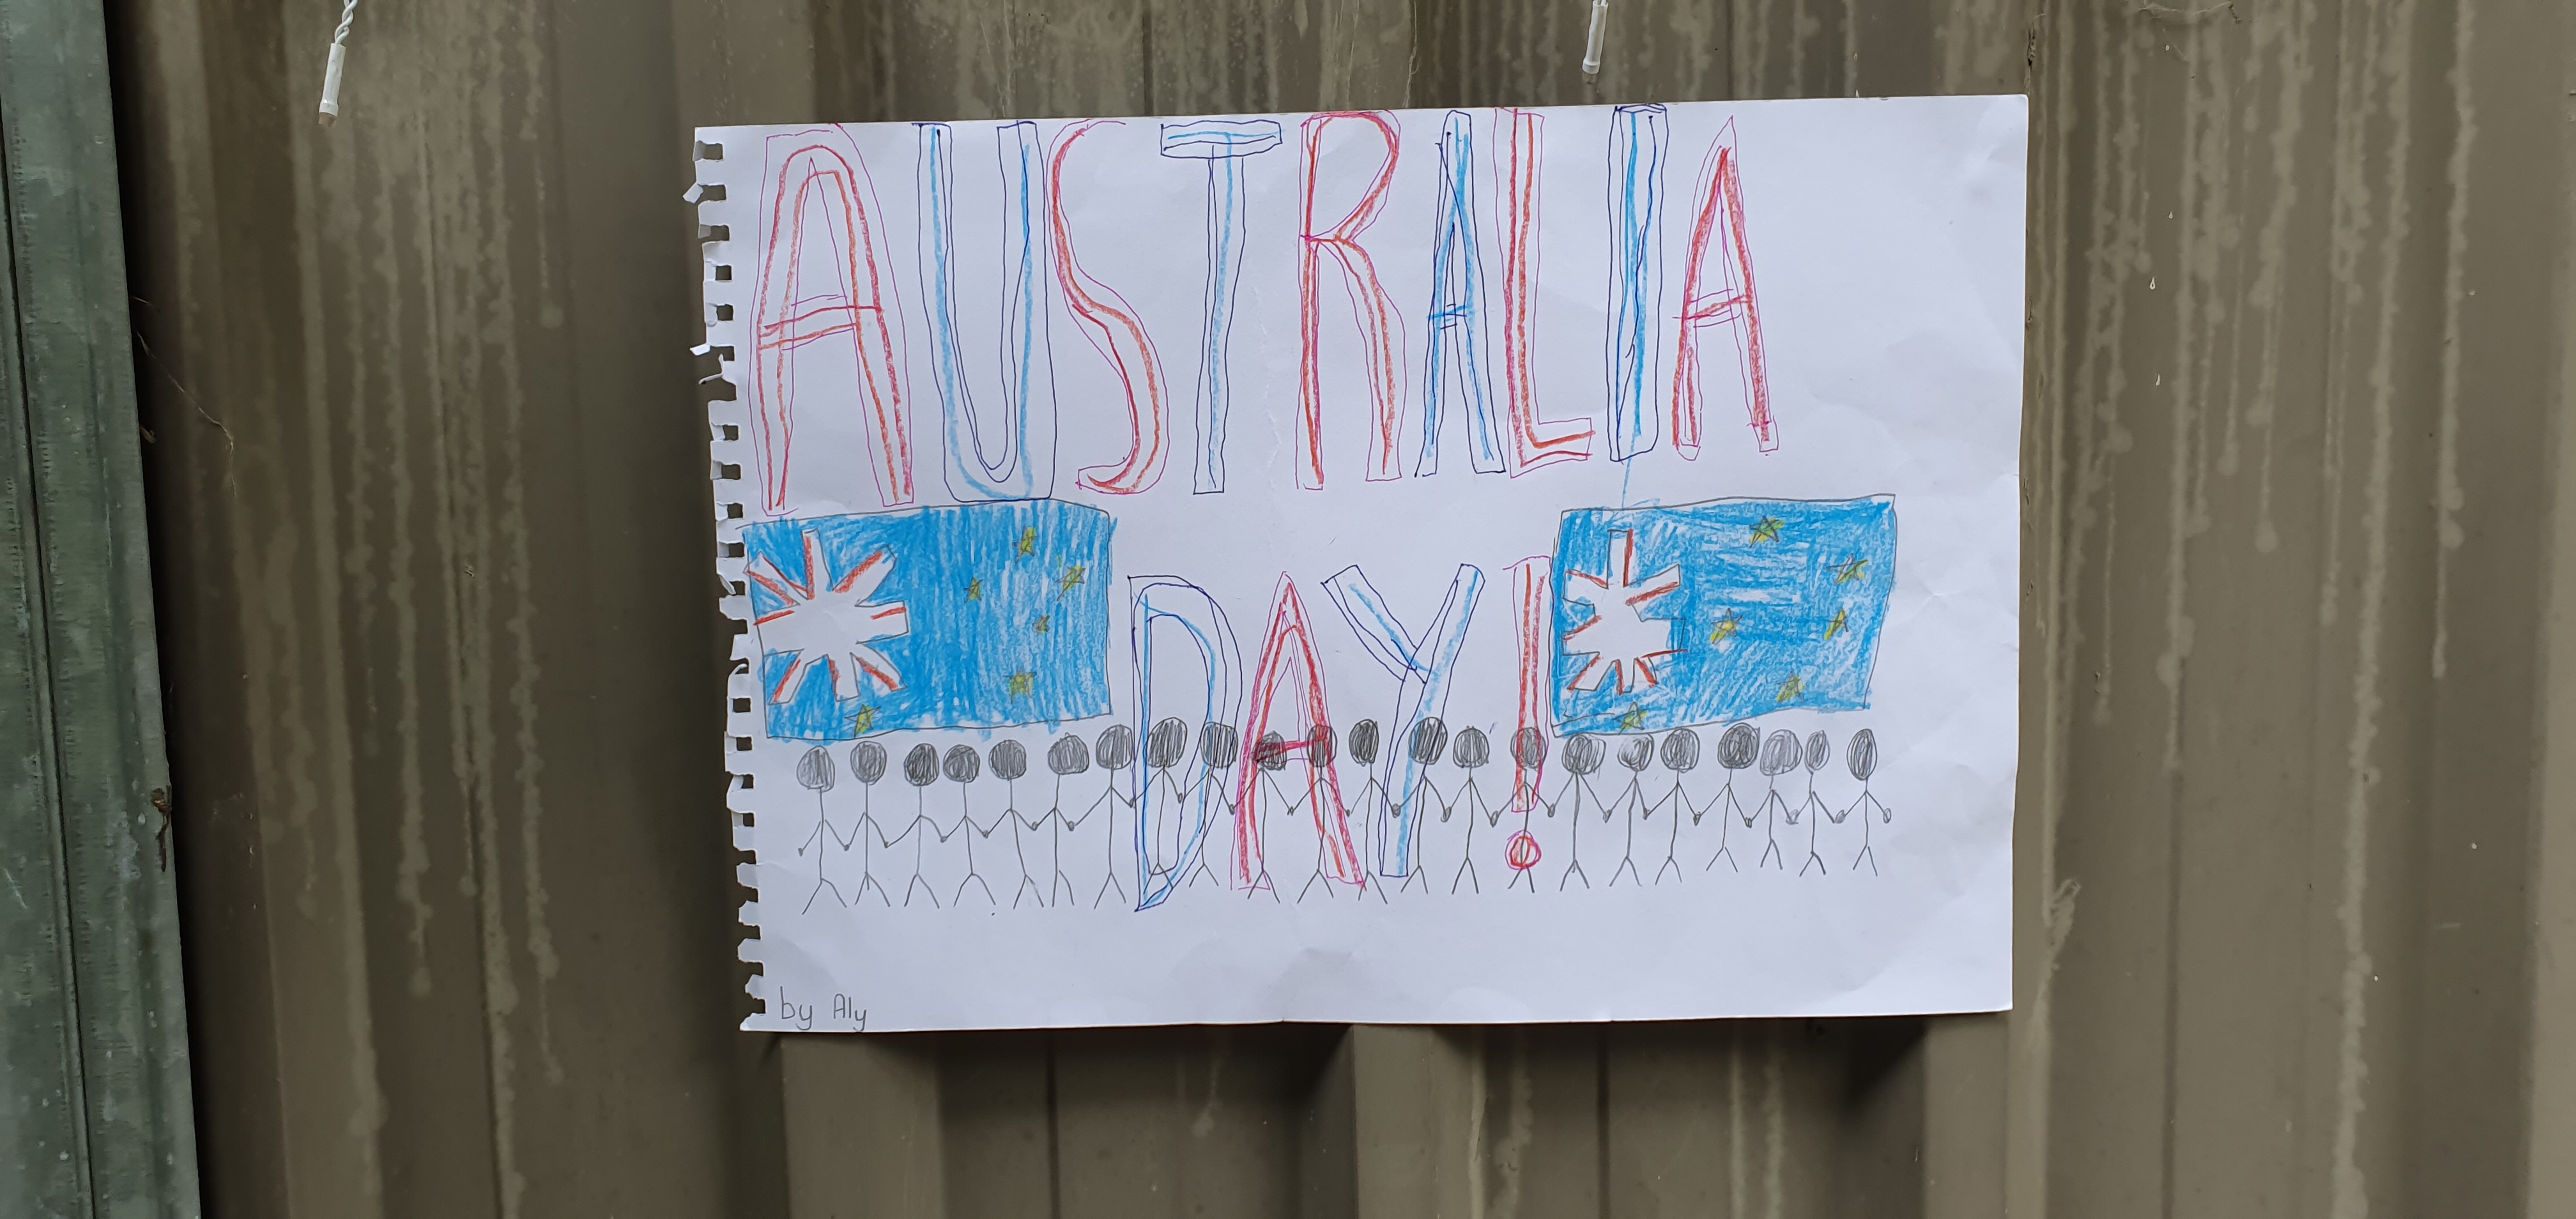 AUSTRALIA
DAY!
by Aly